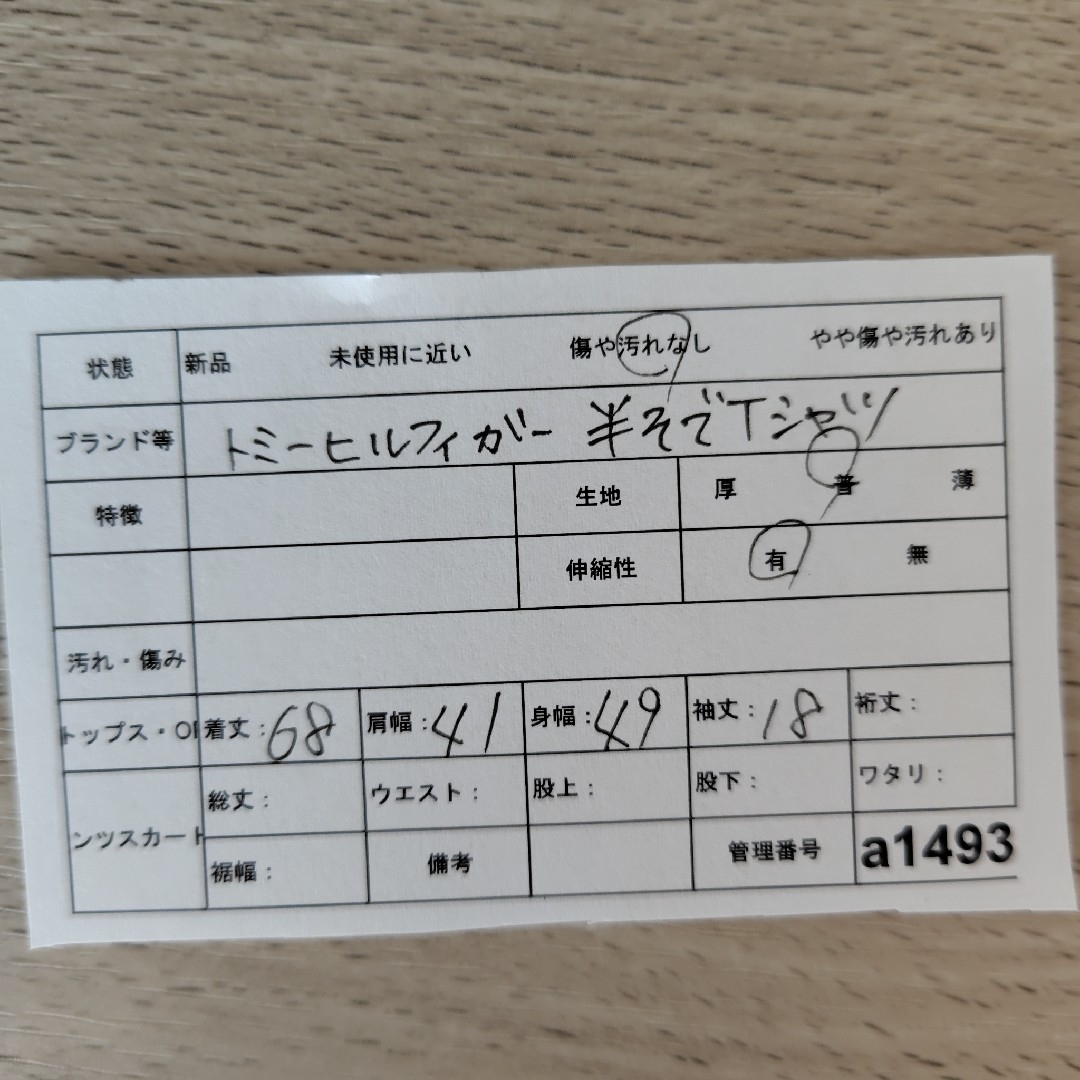 状態 新品 未使用に近い 傷や汚れなし やや傷や汚れあり
ブランド等 トミーヒルフィガー 半そでTシャツ
特徴 生地 厚 普 薄
伸縮性 有 無
汚れ・傷み
トップス・O 着丈：68 肩幅：41 身幅：49 袖丈：18 裄丈：
ンツスカート 総丈： ウエスト： 股上： 股下： ワタリ：
裾幅： 備考 管理番号 a1493